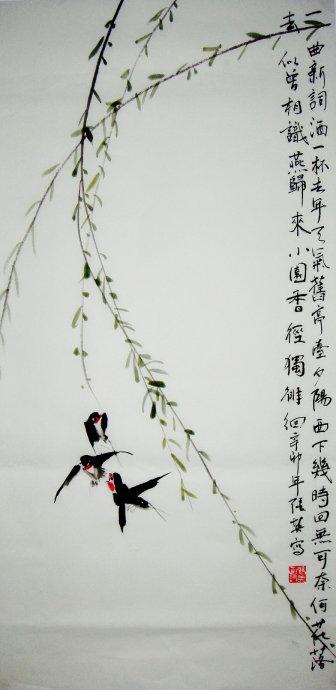 一曲新詞酒一杯去年天氣舊亭臺夕陽西下幾時回無可奈何花落
去似曾相識燕歸來小園香徑獨徘徊辛卯年英寫